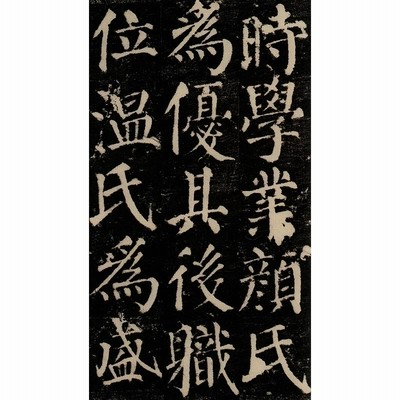 時學業顔氏
為優其後職
位温氏為盛